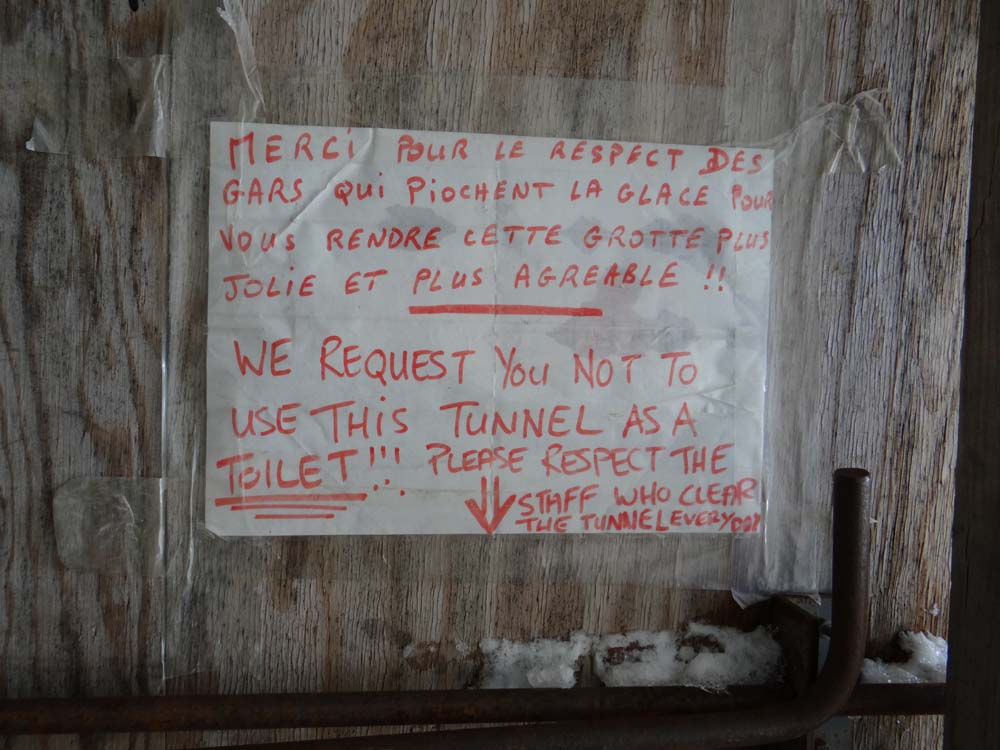 MERCI POUR LE RESPECT DES
GARS QUI PIOCHENT LA GLACE POUR
VOUS RENDRE CETTE GROTTE PLUS
JOLIE ET PLUS AGREABLE !!
WE REQUEST YOU NOT TO
USE THIS TUNNEL AS A
TOILET!!! PLEASE RESPECT THE
STAFF WHO CLEAR
THE TUNNEL EVERYDAY